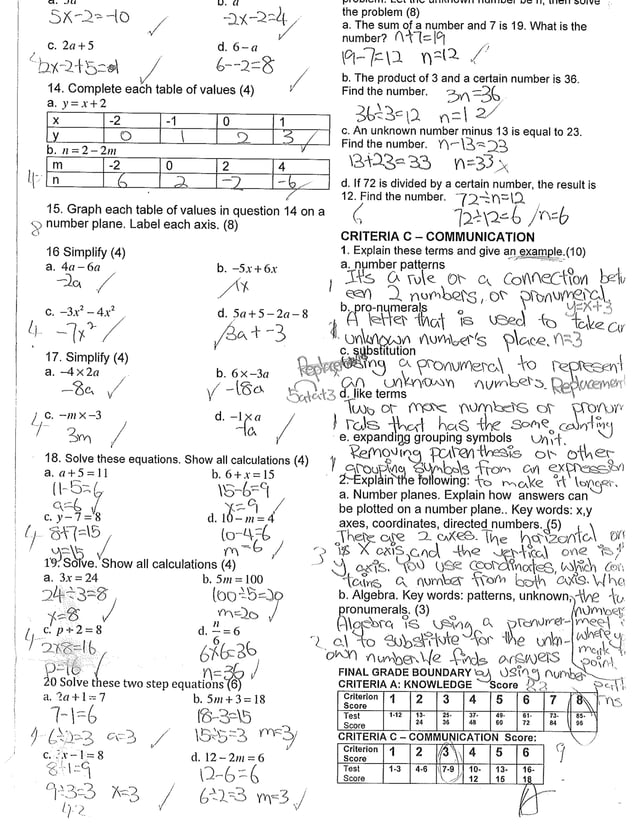 5x-2=-10
-2x-2=4
c. 2a+5
d. 6-a
2x-2+5=
6--2=8
14. Complete each table of values (4)
a. y=x+2
x -2 -1 0 1
y 0 1 2 3
b. n=2-2m
m -2 0 2 4
n 6 2 -2 -6
4
15. Graph each table of values in question 14 on a
8 number plane. Label each axis. (8)
16 Simplify (4)
a. 4a-6a
b. -5x+6x
-2a
1x
c. -3x²-4x²
d. 5a+5-2a-8
4 -7x²
3a+-3
17. Simplify (4)
a. -4×2a
b. 6×-3a
-8a
-18a
c. -m×-3
d. -1×a
4
3m
-1a
18. Solve these equations. Show all calculations (4)
a. a+5=11
b. 6+x=15
11-5=6
15-6=9
a=6
x=9
c. y-7=8
d. 10-m=4
4 8+7=15
10-4=6
y=15
m=6
19. Solve. Show all calculations (4)
a. 3x=24
b. 5m=100
24÷3=8
100÷5=20
x=8
m=20
c. p+2=8
d. n/6=6
4 2x8=16
6x6=36
p=16
n=36
20 Solve these two step equations (6)
a. 2a+1=7
b. 5m+3=18
7-1=6
18-3=15
6÷2=3 a=3
15÷5=3 m=3
c. x-1=8
d. 12-2m=6
8+1=9
12-6=6
9÷3=3 x=3
6÷2=3 m=3
the problem (8)
a. The sum of a number and 7 is 19. What is the
number? n+7=19
19-7=12 n=12
b. The product of 3 and a certain number is 36.
Find the number. 3n=36
36÷3=12 n=12
c. An unknown number minus 13 is equal to 23.
Find the number. n-13=23
13+23=33 n=33 x
d. If 72 is divided by a certain number, the result is
12. Find the number. 72÷n=12
6 72÷12=6 n=6
CRITERIA C – COMMUNICATION
1. Explain these terms and give an example.(10)
a. number patterns
1 It's a rule or a connection betw
een 2 numbers, or pronumeral,
b. pro-numerals y=x+3
A letter that is used to take an
unknown number's place. n=3
c. substitution
Using a pronumeral to represent
an unknown numbers. Replacement
5a+a+3 d. like terms
Two or more numbers or pronum
1 rals that has the same counting
e. expanding grouping symbols unit.
Removing parenthesis or other
1 grouping symbols from an expression
2. Explain the following: to make it longer.
a. Number planes. Explain how answers can
be plotted on a number plane.. Key words: x,y
axes, coordinates, directed numbers. (5)
There are 2 axes. The horizontal on
3 is X axis, and the vertical one is
y axis. You use coordinates, which con
tains a number from both axis. Whe
b. Algebra. Key words: patterns, unknown, the tw
pronumerals. (3) number
Algebra is using a pronumer- meet
2 al to substitute for the unkn- where y
own number. We finds answers mark
by using number point
FINAL GRADE BOUNDARY
CRITERIA A: KNOWLEDGE Score
Criterion Score 1 2 3 4 5 6 7 8
Test Score 1-12 13-24 25-36 37-48 49-60 61-72 73-84 85-96
CRITERIA C – COMMUNICATION Score: 9
Criterion Score 1 2 3 4 5 6
Test Score 1-3 4-6 7-9 10-12 13-15 16-18